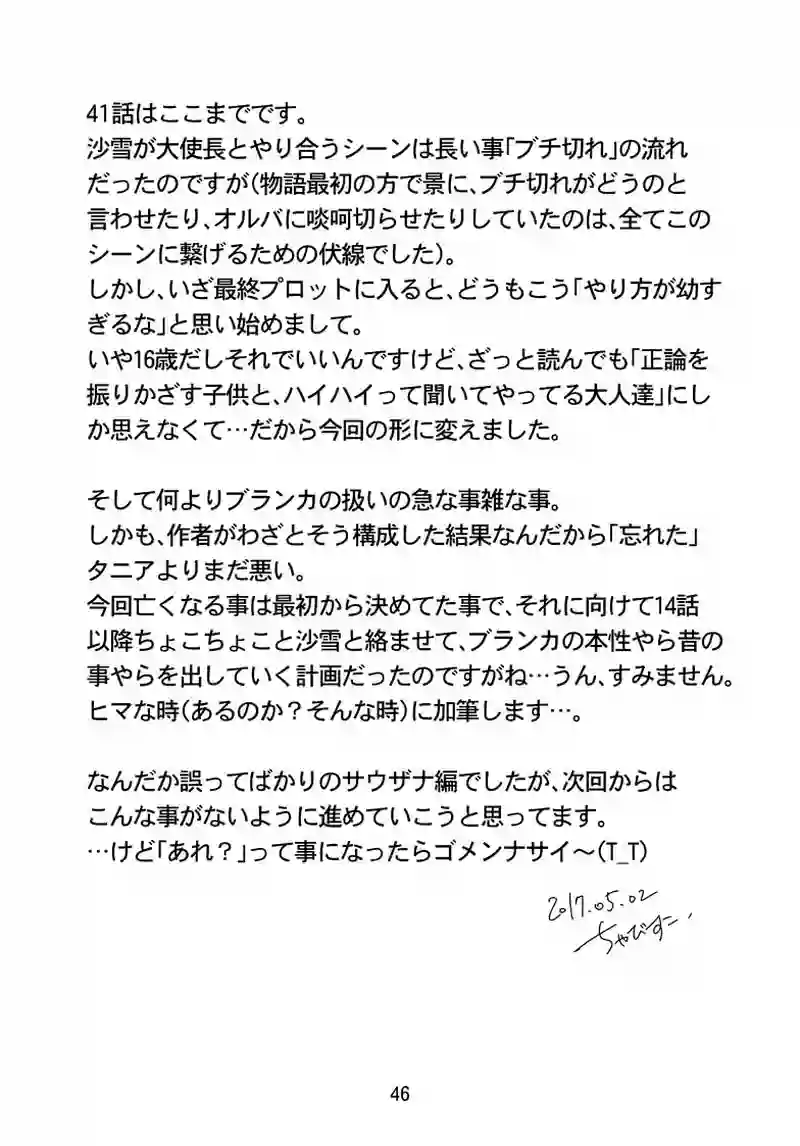 41話はここまでです。
沙雪が大使長とやり合うシーンは長い事「ブチ切れ」の流れ
だったのですが(物語最初の方で景に、ブチ切れがどうのと
言わせたり、オルバに啖呵切らせたりしていたのは、全てこの
シーンに繋げるための伏線でした)。
しかし、いざ最終プロットに入ると、どうもこう「やり方が幼す
ぎるな」と思い始めまして。
いや16歳だしそれでいいんですけど、ざっと読んでも「正論を
振りかざす子供と、ハイハイって聞いてやってる大人達」にし
か思えなくて…だから今回の形に変えました。
そして何よりブランカの扱いの急な事雑な事。
しかも、作者がわざとそう構成した結果なんだから「忘れた」
タニアよりまだ悪い。
今回亡くなる事は最初から決めてた事で、それに向けて14話
以降ちょこちょこと沙雪と絡ませて、ブランカの本性やら昔の
事やらを出していく計画だったのですがね…うん、すみません。
ヒマな時(あるのか?そんな時)に加筆します…。
なんだか誤ってばかりのサウザナ編でしたが、次回からは
こんな事がないように進めていこうと思ってます。
…けど「あれ?」って事になったらゴメンナサイ〜(T_T)
2017.05.02
ちゃびすこ
46